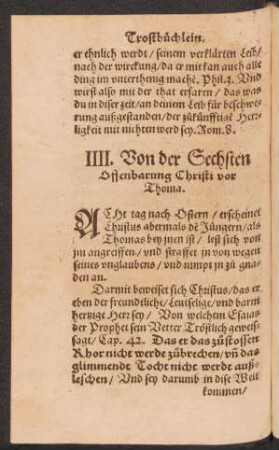 Trostbüchlein.
er ehnlich werdt / seinem verklärten Leib /
nach der wirckung / da er mit kan auch alle
ding im vnterthenig machē. Phil. 3. Vnd
wirst also mit der that erfaren / das was
du in diser zeit / an deinem Leib für beschwe-
rung außgestanden / der zůkünfftigē Herr-
ligkeit nit nichten werd sey. Rom. 8.
IIII. Von der Sechsten
Offenbarung Christi vor
Thoma.
ACHt tag nach Ostern / erscheinet
Christus abermals dē Jüngern / als
Thomas bey jnen ist / lest sich von
jm angreiffen / vnd straffet jn von wegen
seines vnglaubens / vnd nimpt jn zů gna-
den an.
Darmit beweiset sich Christus / das er
eben der freundtliche / Leutselige / vnd barm
hertzige Herr sey / Von welchem Esaias
der Prophet sein Vetter Tröstlich geweis-
sagt / Cap. 42. Das er das zůstossen
Rhor nicht werde zůbrechen / vñ das
glimmendt Tocht nicht werde auß-
leschen / Vnd sey darumb in dise Welt
kommen /